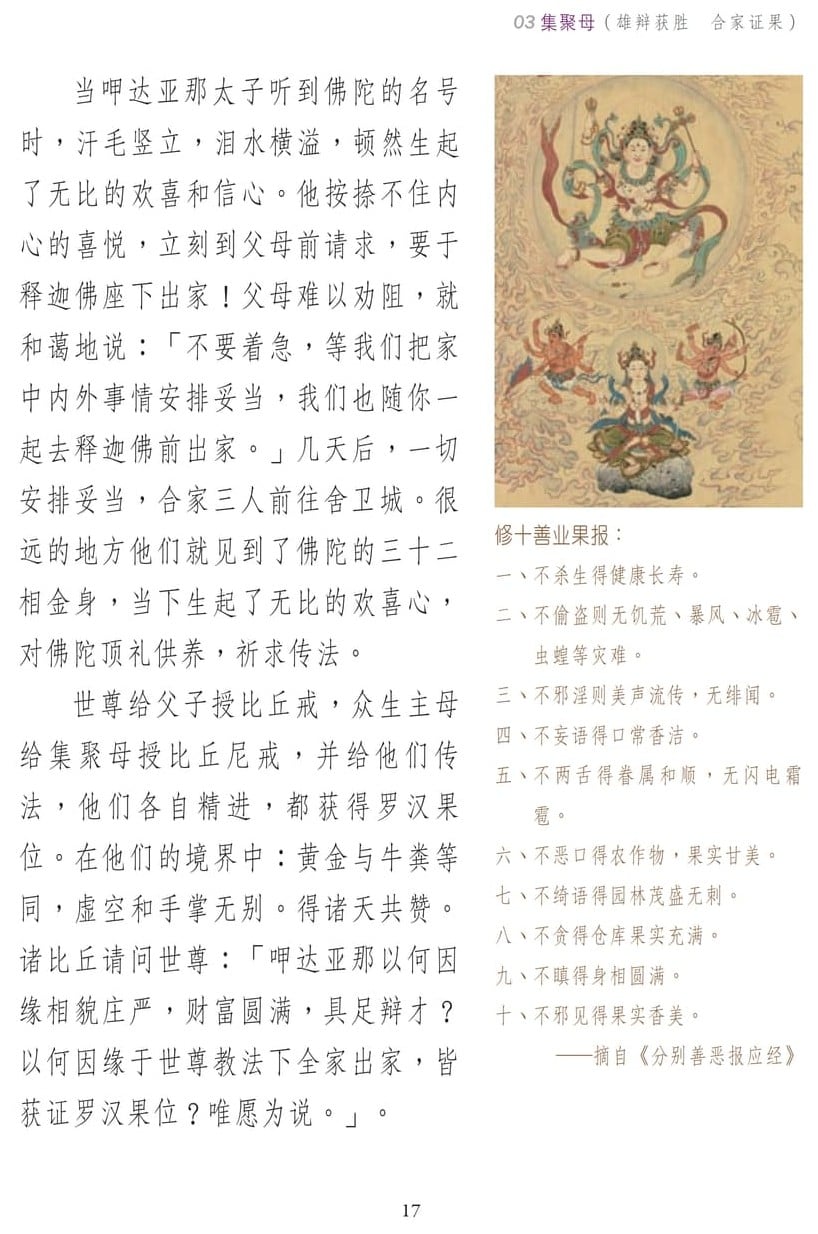 03 集聚母（雄辩获胜　合家证果）
当呷达亚那太子听到佛陀的名号
时，汗毛竖立，泪水横溢，顿然生起
了无比的欢喜和信心。他按捺不住内
心的喜悦，立刻到父母前请求，要于
释迦佛座下出家！父母难以劝阻，就
和蔼地说：「不要着急，等我们把家
中内外事情安排妥当，我们也随你一
起去释迦佛前出家。」几天后，一切
安排妥当，合家三人前往舍卫城。很
远的地方他们就见到了佛陀的三十二
相金身，当下生起了无比的欢喜心，
对佛陀顶礼供养，祈求传法。
世尊给父子授比丘戒，众生主母
给集聚母授比丘尼戒，并给他们传
法，他们各自精进，都获得罗汉果
位。在他们的境界中：黄金与牛粪等
同，虚空和手掌无别。得诸天共赞。
诸比丘请问世尊：「呷达亚那以何因
缘相貌庄严，财富圆满，具足辩才？
以何因缘于世尊教法下全家出家，皆
获证罗汉果位？唯愿为说。」。
修十善业果报：
一、不杀生得健康长寿。
二、不偷盗则无饥荒、暴风、冰雹、
虫蝗等灾难。
三、不邪淫则美声流传，无绯闻。
四、不妄语得口常香洁。
五、不两舌得眷属和顺，无闪电霜
雹。
六、不恶口得农作物，果实甘美。
七、不绮语得园林茂盛无刺。
八、不贪得仓库果实充满。
九、不瞋得身相圆满。
十、不邪见得果实香美。
──摘自《分别善恶报应经》
17